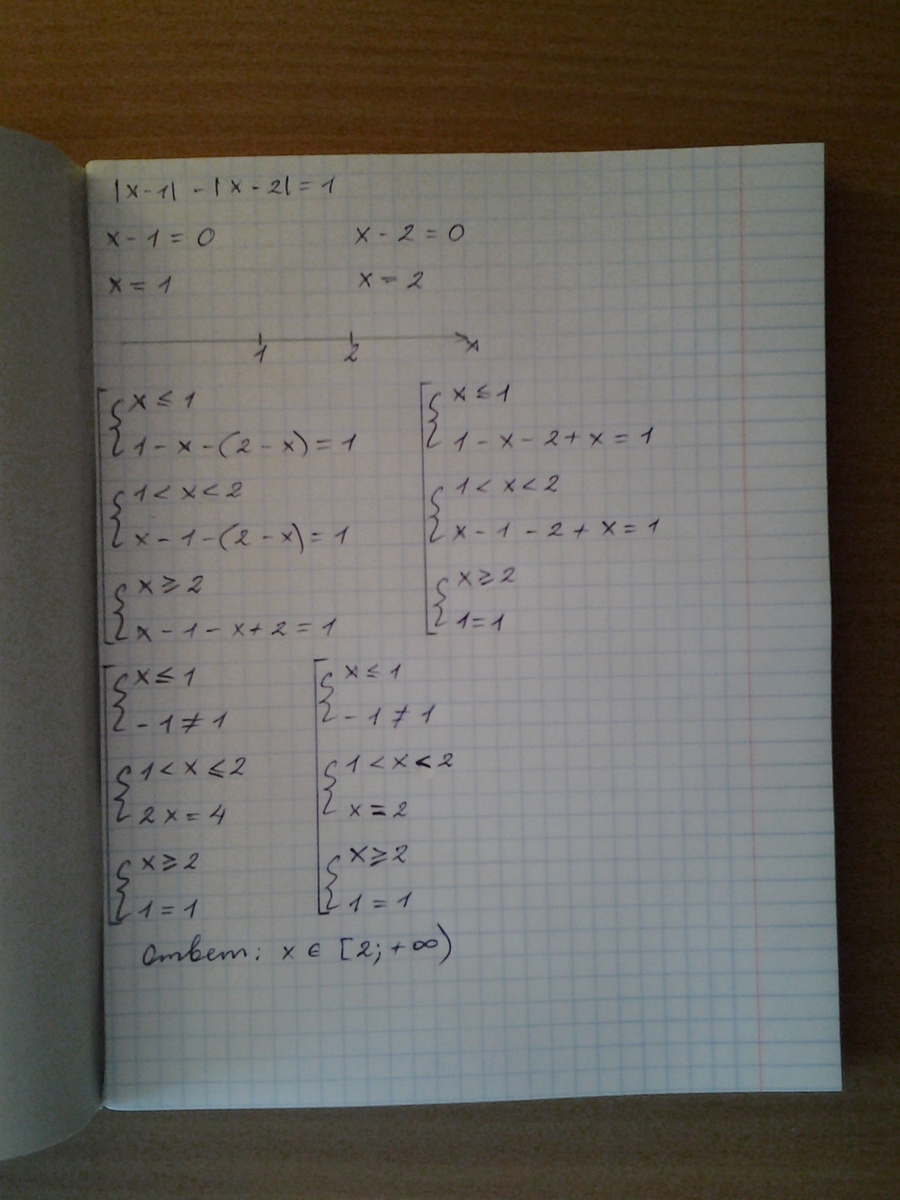 |x-1| - |x-2| = 1
x - 1 = 0 x - 2 = 0
x = 1 x = 2
1 2 x
x ≤ 1
1 - x - (2 - x) = 1
1 < x < 2
x - 1 - (2 - x) = 1
x ≥ 2
x - 1 - x + 2 = 1
x ≤ 1
1 - x - 2 + x = 1
1 < x < 2
x - 1 - 2 + x = 1
x ≥ 2
1 = 1
x ≤ 1
- 1 ≠ 1
1 < x ≤ 2
2x = 4
x ≥ 2
1 = 1
x ≤ 1
- 1 ≠ 1
1 < x < 2
x = 2
x ≥ 2
1 = 1
Ответ: x ∈ [2; +∞)